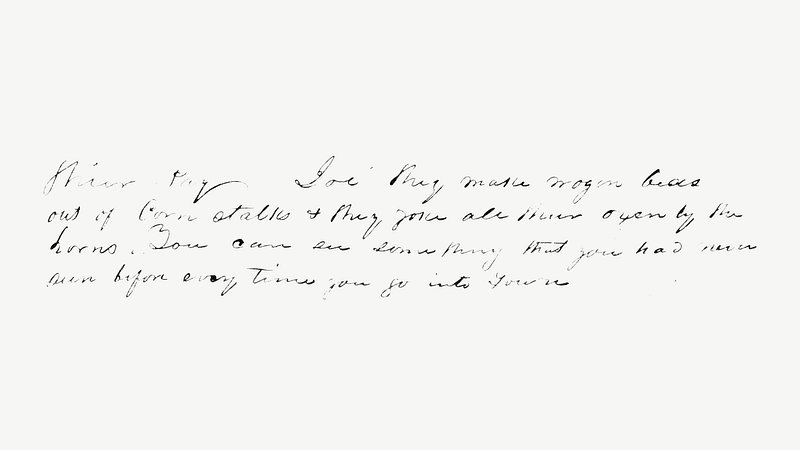 thier pay Joe they make wagon beds
out of Corn stalks & they yoke all thier oxen by the
horns. You can see something that you had never
seen before every time you go into Town